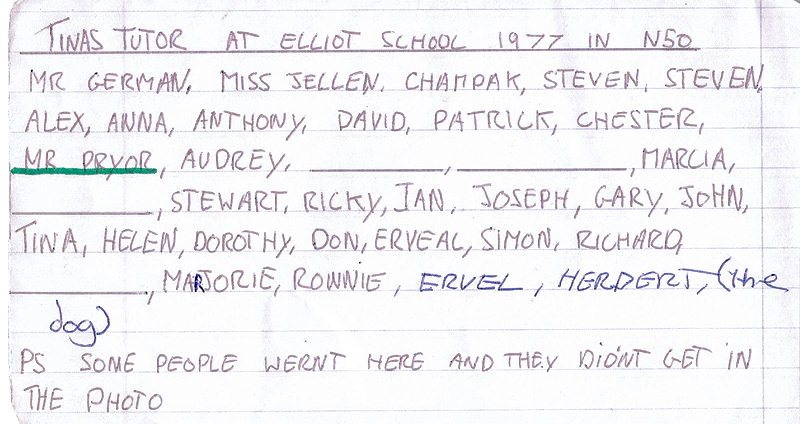 TINAS TUTOR AT ELLIOT SCHOOL 1977 IN N50
MR GERMAN, MISS JELLEN, CHAMPAK, STEVEN, STEVEN,
ALEX, ANNA, ANTHONY, DAVID, PATRICK, CHESTER,
MR PRYOR, AUDREY, __________, __________, MARCIA,
__________, STEWART, RICKY, IAN, JOSEPH, GARY, JOHN,
TINA, HELEN, DOROTHY, DON, ERVEAL, SIMON, RICHARD,
__________, MARJORIE, ROWNIE, ERVEL, HERDERT, (the
dog)
PS SOME PEOPLE WERNT HERE AND THEY DIDNT GET IN
THE PHOTO